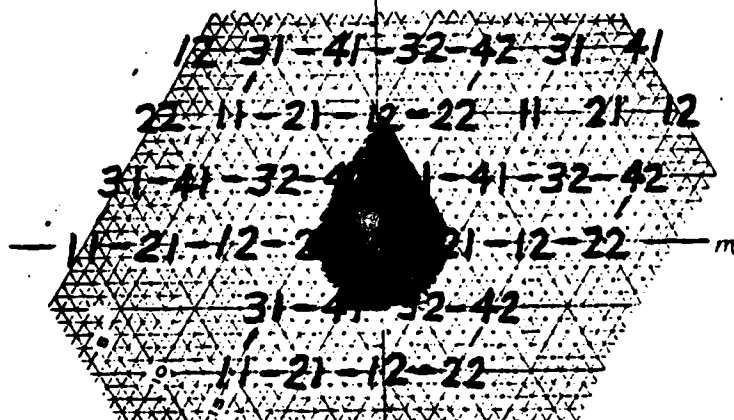 12 31-41-32-42-31 41
22 11-21-12-22 11-21 12
31-41-32-4 1-41-32-42
11-21-12-2 21-12-22 m
31-4 32-42
11-21-12-22